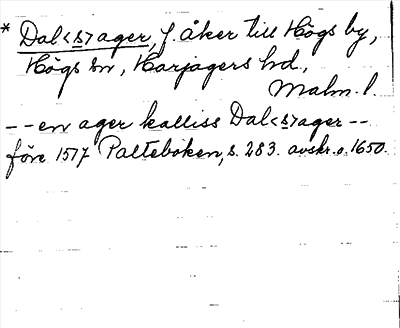 * Dal<s>ager, f. åker till Högs by,
Högs sn, Harjagers hd,
Malm. l
-- en ager kalliss Dal<s>ager --
före 1517 Palteboken, s. 283. avskr. o. 1650.